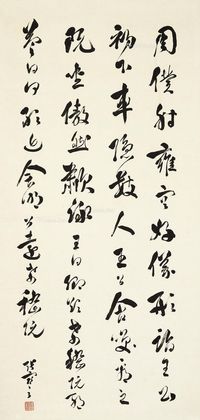 周僕射雍容好儀形詣王公
初下車隱數人王公含笑看之
既坐傲然歗詠王曰卿欲希嵇阮邪
答曰何敢近舍明公遠希嵇阮